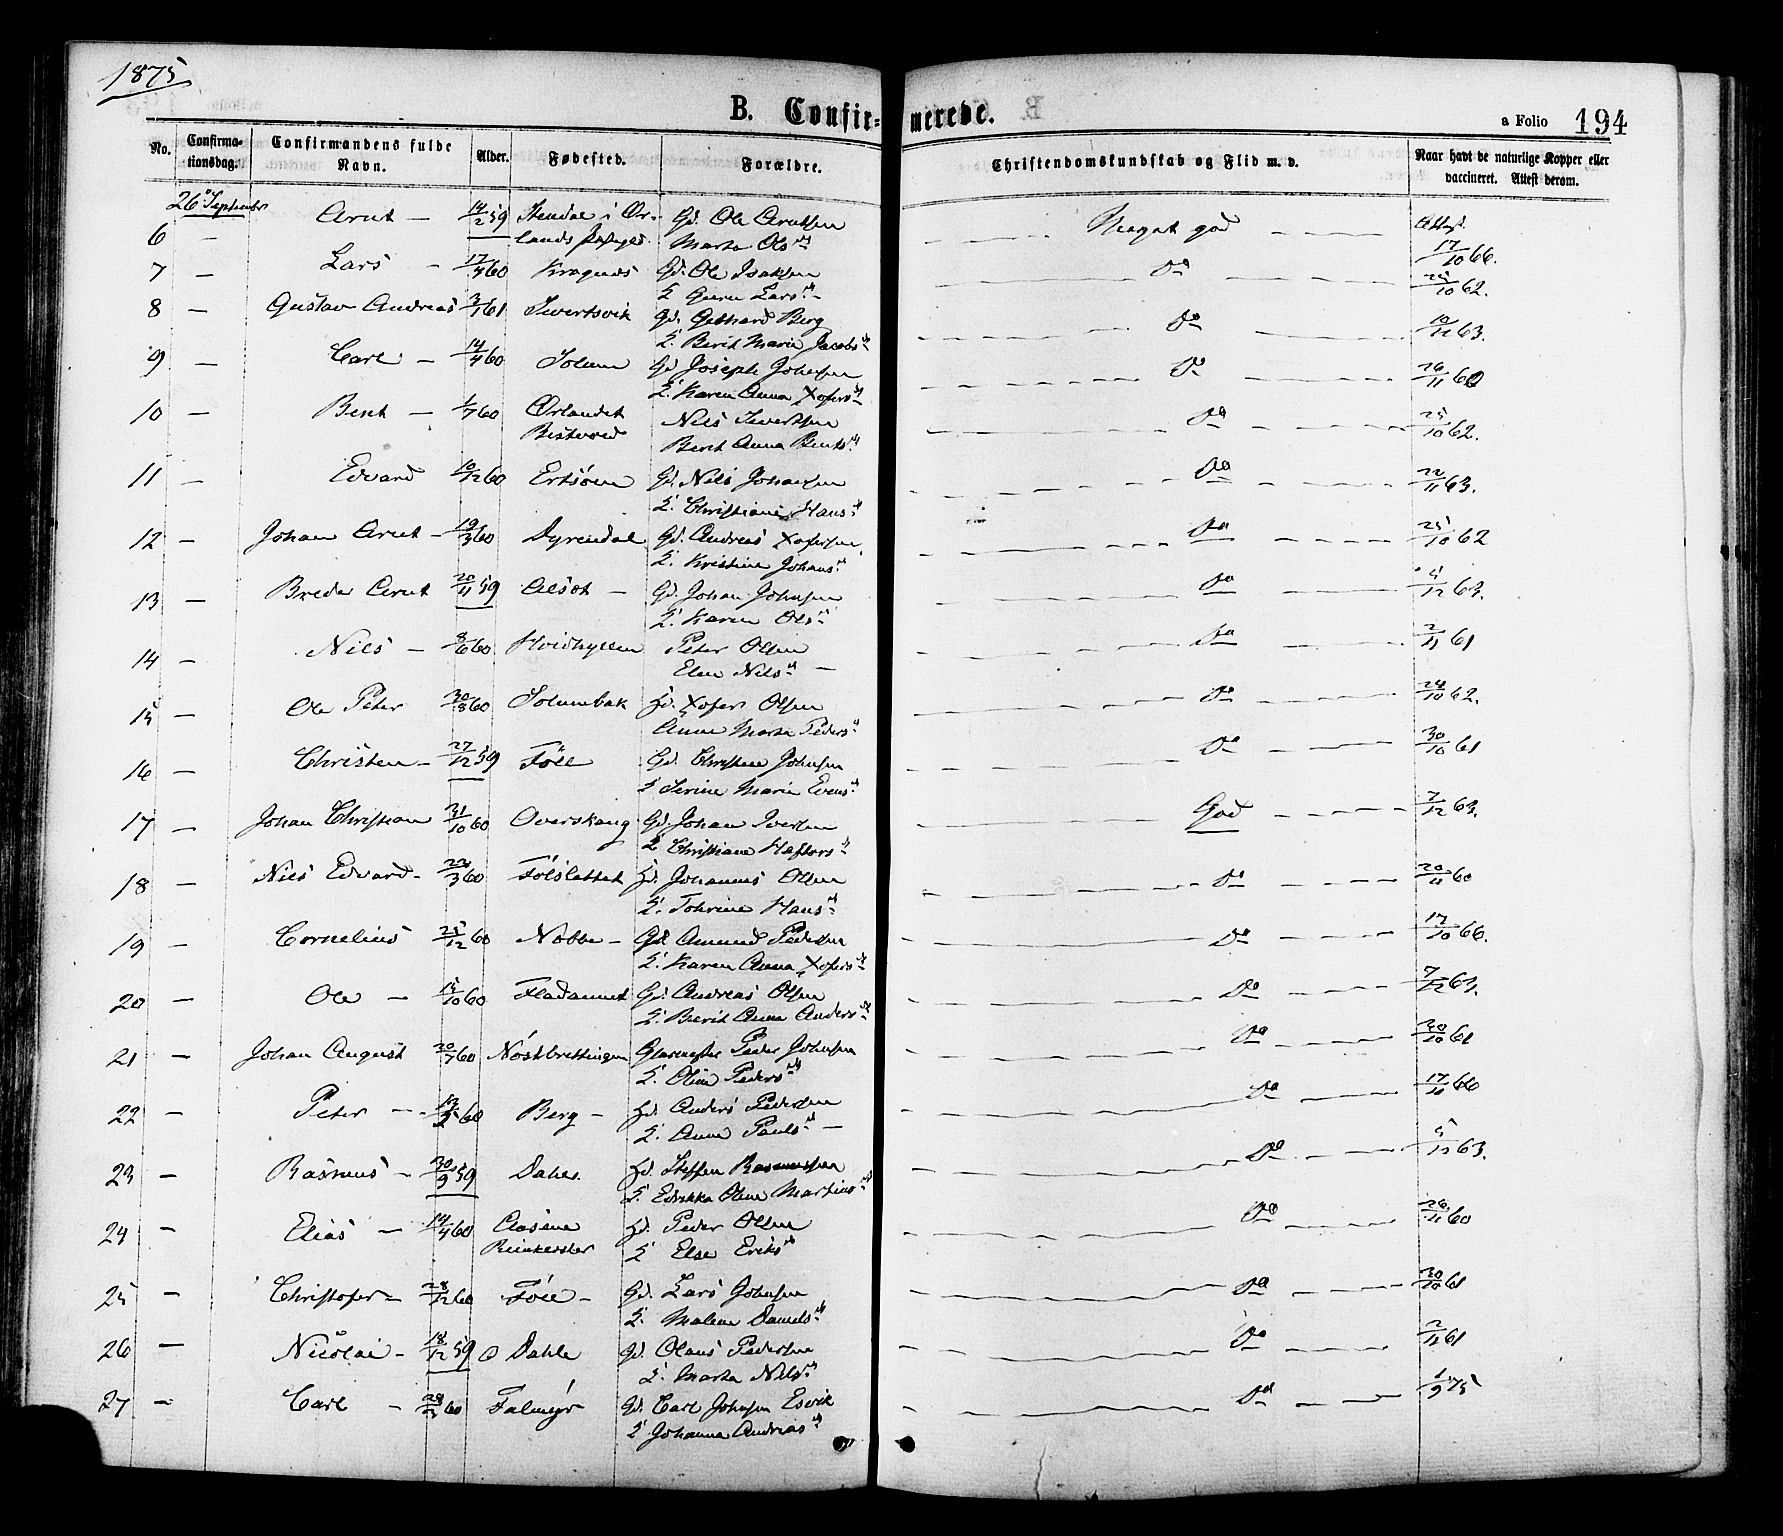 1875
B. Confir=merede.
a Folio 194
No. Confirma-tionsdag. Confirmandens fulde Navn. Alder. Fødested. Forældre. Christendomskundskab og Flid m. v. Naar havt de naturlige Kopper eller vaccineret. Attest derom.
26 September
6 — Arnt — 14/2 59 i Ør-lands Gd. Ole Arntsen Marta Ols Meget god Attest 17/10 66.
7 — Lars — 17/4 60 Gd. Ole Isaksen & Guru Lars Do 25/10 62.
8 — Gustav Andreas 3/1 61 Sivertsvik Gd. Gethard Berg & Berit Marie Jacobs Do 10/12 63.
9 — Carl — 14/4 60 Solem Gd Joseph Johnsen & Karen Anna Xofers Do 26/11 60
10 — Bent — 1/7 60 Ørlandet Nils Sivertsen Berit Anna Bents Do 25/10 62.
11 — Edvard 10/12 60 Gd. Nils Johansen & Christiane Hans Do 22/11 63.
12 — Johan Arnt — 19/3 60 Dyrendal Gd. Andreas Xofersen & Kristine Johans Do 25/10 62
13 — Breder Arnt 20/11 59 Alsøt — Gd. Johan Johnsen & Karen Ols Do 5/12 63.
14 — Nils — 8/6 60 Hvidhyllen Peter Olsen Elen Nils — Do 2/11 61
15 — Ole Peter 30/8 60 Solembak Hd. Xofer Olsen Anne Marta Peders Do 24/10 62.
16 — Christen — 27/12 59 Föll Gd. Christen Johnsen & Serine Marie Evens Do 30/10 61
17 — Johan Christian 31/10 60 Overskang Gd. Johan Iversen & Christiane Haftors God 7/12 63.
18 — Nils Edvard — 22/3 60 Fölslettet Hd. Johannes Olsen & Tohrine Hans Do 20/11 60
19 — Cornelius 25/12 60 Nobbe — Gd. Amund Pedersen & Karen Anna Xofers Do 17/10 66.
20 — Ole — 15/10 60 Gd. Andreas Olsen & Berit Anna Anders Do 7/12 63.
21 — Johan August 20/7 60 Glasmester Peder Johnsen & Oline Peders Do 30/10 61
22 — Peter — 60 Berg — Hd. Anders Pedersen & Anne Pauls — Do 17/11 66
23 — Rasmus — 30/9 59 Dahl. Hd. Steffen Rasmussen & Oline Martins Do 5/12 63.
24 — Elias — 14/4 60 Hd. Peder Olsen & Else Eriks Do 26/11 60
25 — Christofer — 28/12 60 Föll — Gd. Lars Johnsen & Malene Daniels Do 30/10 61
26 — Nicolai — 18/12 59 Dahle Gd. Olaus Pedersen & Marta Nils Do 2/11 61
27 — Carl — 60 Falmyr Gd. Carl Johnsen Esvik & Johanna Andreas Do 1/9 75